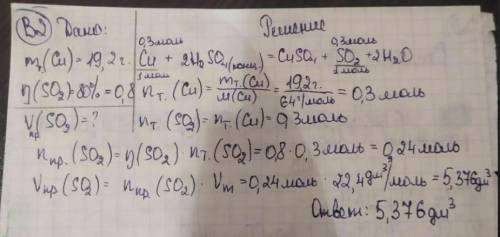 В2 Дано: Решение
m т.(Cu) = 19,2 г.
η(SO₂) = 80% = 0,8
Vпр(SO₂) = ?
0,3 моль 0,3 моль
Cu + 2H₂SO₄(конц.) = CuSO₄ + SO₂ + 2H₂O
1 моль 1 моль
nт.(Cu) = mт.(Cu)/M(Cu) = 19,2 г./64 г/моль = 0,3 моль
nт.(SO₂) = nт.(Cu) = 0,3 моль
nпр.(SO₂) = η(SO₂) · nт.(SO₂) = 0,8 · 0,3 моль = 0,24 моль
Vпр(SO₂) = nпр.(SO₂) · Vm = 0,24 моль · 22,4 дм³/моль = 5,376 дм³
Ответ: 5,376 дм³